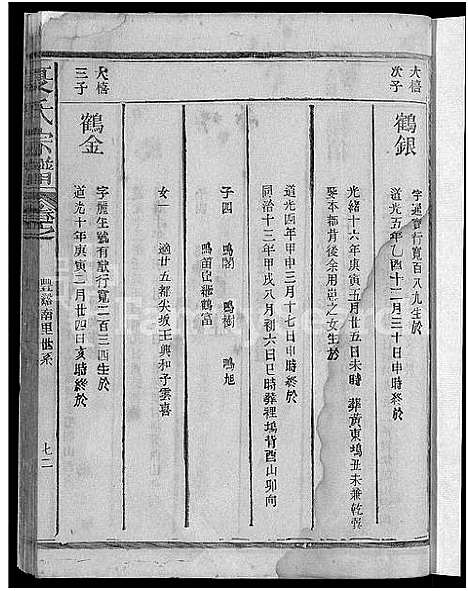 大樁
次子
鶴銀
字 行寬百八九生於
道光五年乙酉十二月三十日申時終於
光緒十六年庚寅五月廿五日未時 葬黃東塢丑未兼乾巽
娶本都背後余用 之女生於
道光四年甲申三月十七日申時終於
同治十三年甲戌八月初六日巳時葬裡塢背酉山卯向
子四 鳴閣 鳴樹 鳴旭
鳴苗 繼鶴富
女一 適廿五都尖坂王興和子雲喜
大樁
三子
鶴金
字 生號有 行寬二百三四生於
道光十年庚寅二月廿四日亥時終於
夏氏宗譜
豐谿南里世系
七二